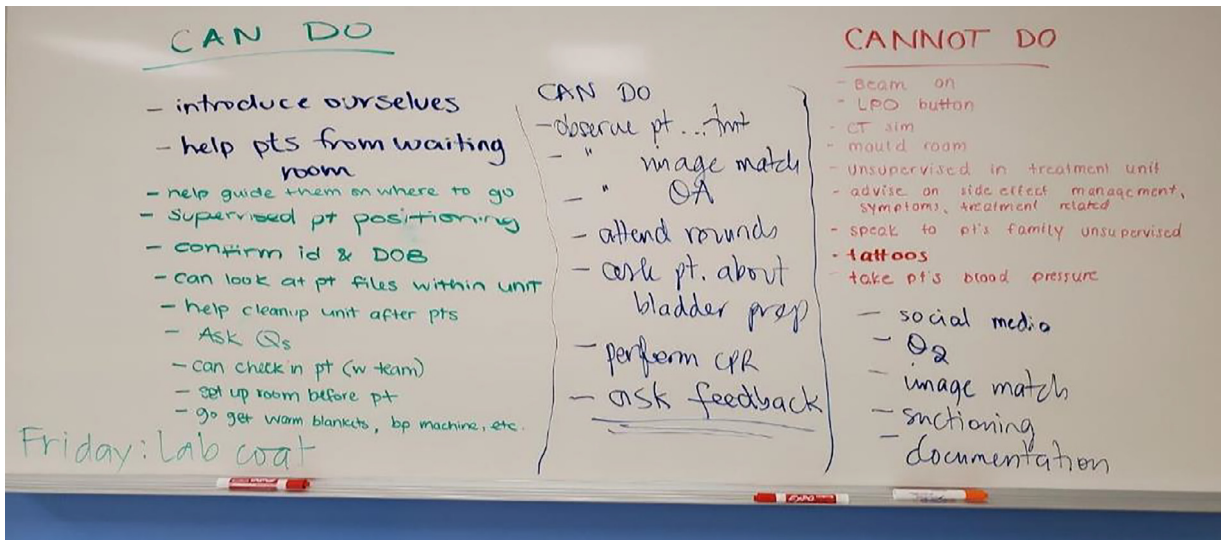 CAN DO
- introduce ourselves
- help pts from waiting
room
- help guide them on where to go
- supervised pt positioning
- confirm id & DOB
- can look at pt files within unit
- help cleanup unit after pts
- Ask Qs
- can check in pt (w team)
- set up room before pt
- go get warm blankets, bp machine, etc.
Friday: Lab coat
CAN DO
- observe pt... tmt
- " image match
- " QA
- attend rounds
- ask pt. about
bladder prep
- perform CPR
- ask feedback
CANNOT DO
- Beam on
- LPO button
- CT sim
- mould room
- unsupervised in treatment unit
- advise on side effect management,
symptoms, treatment related
- speak to pt's family unsupervised
- tattoos
- take pt's blood pressure
- social media
- O2
- image match
- suctioning
- documentation
EXPO